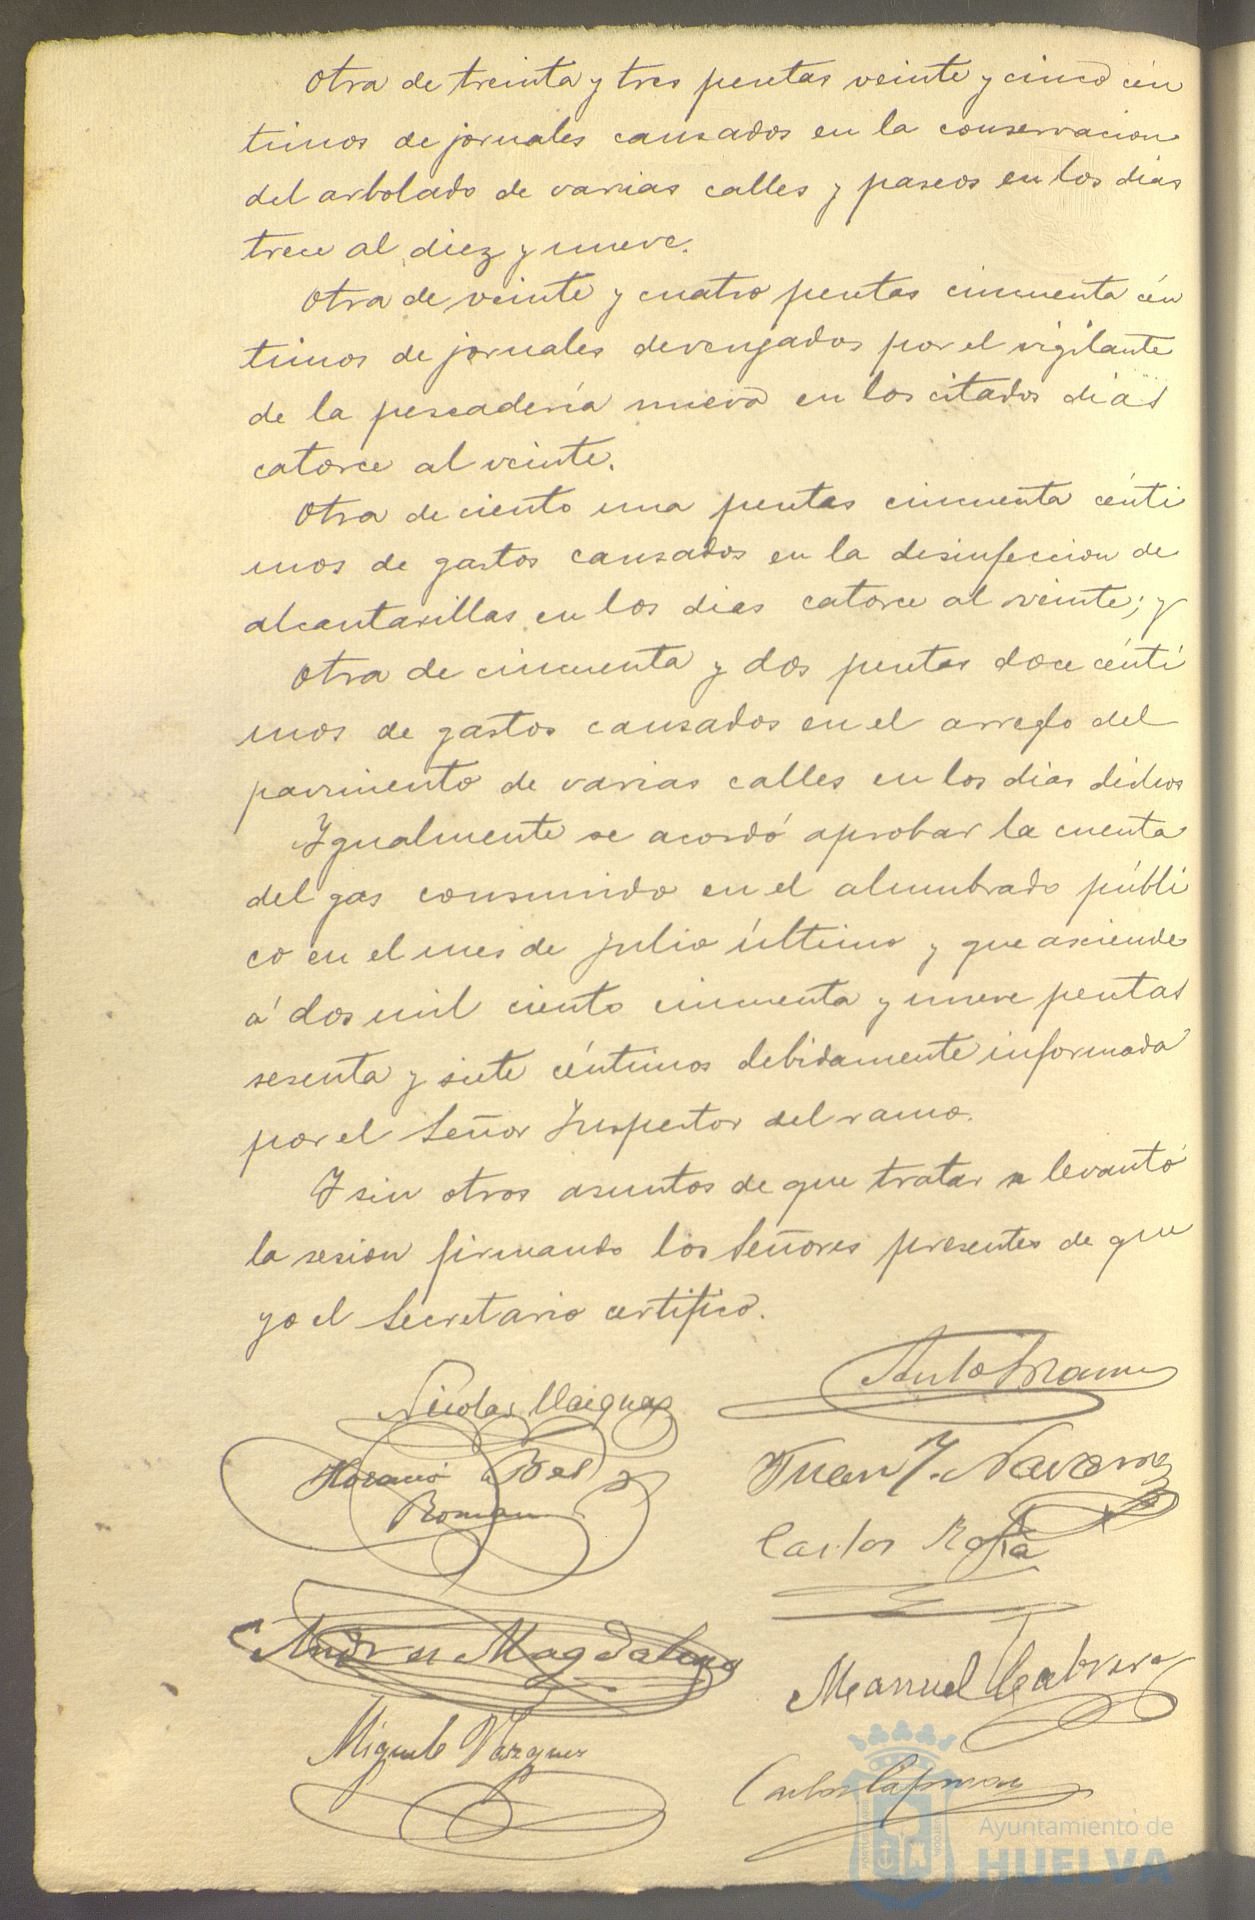 Otra de treinta y tres pesetas veinte y cinco cén
timos de jornales causados en la conservacion
del arbolado de varias calles y paseos en los dias
trece al diez y nueve.
Otra de veinte y cuatro pesetas cincuenta cén
timos de jornales devengados por el vigilante
de la pescadería nueva en los citados dias
catorce al veinte.
Otra de ciento una pesetas cincuenta cénti
mos de gastos causados en la desinfeccion de
alcantarillas en los dias catorce al veinte; y
Otra de cincuenta y dos pesetas doce cénti
mos de gastos causados en el arreglo del
pavimento de varias calles en los dias dichos
Igualmente se acordó aprobar la cuenta
del gas consumido en el alumbrado públi
co en el mes de Julio último y que asciende
á dos mil ciento cincuenta y nueve pesetas
sesenta y siete céntimos debidamente informada
por el Señor Inspector del ramo.
Y sin otros asuntos de que tratar se levantó
la sesion firmando los Señores presentes de que
yo el Secretario certifico.
Nicolas Vazquez
Horacio Bel
Roman
Juan J. Navarro
Carlos
Andres Magdaleno
Manuel Cabrera
Miguel Vazquez
Carlos
Ayuntamiento de
HUELVA